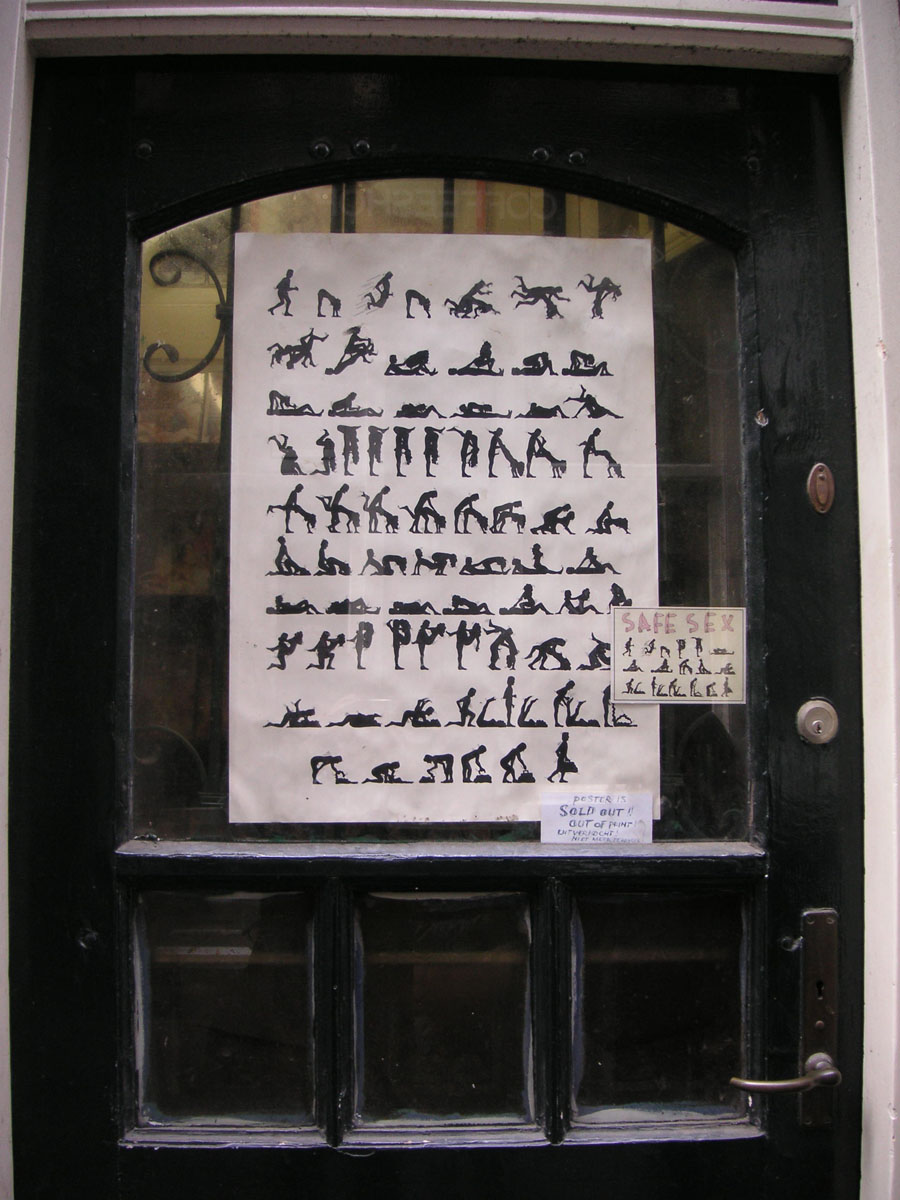 SAFE SEX
POSTER IS
SOLD OUT!!
OUT OF PRINT!
UITVERKOCHT!
NIET